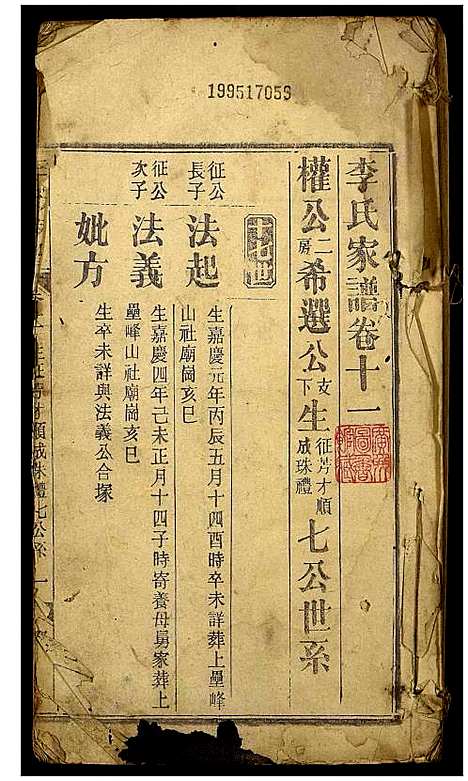 199517059
李氏家譜卷十一
權公二房希選公支下生征芳才順成珠禮七公世系
征公長子
法起
生嘉慶元年丙辰五月十四酉時卒未詳葬上壘峰
山社廟崗亥巳
征公次子
法義
生嘉慶四年己未正月十四子時寄養母舅家葬上
壘峰山社廟崗亥巳
妣方
生卒未詳與法義公合塚